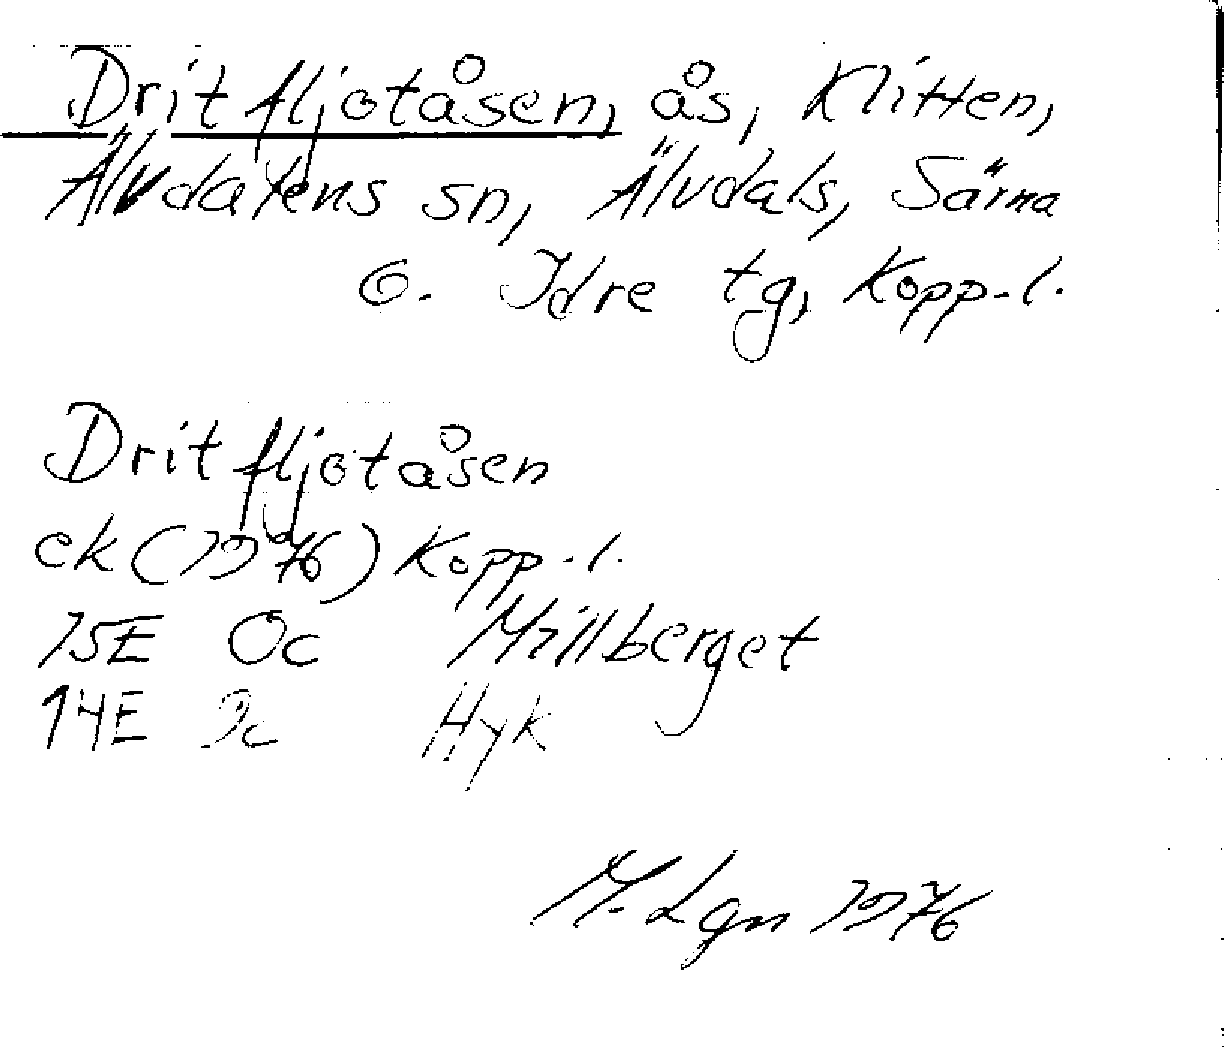 Dritfljotåsen, ås, Klitten,
Älvdalens sn, Älvdals, Särna
o. Idre tg, Kopp-l.
Dritfljotåsen
ek (1976) Kopp-l.
15E Oc Millberget
14E 9c Hyk
M. Lgn 1976